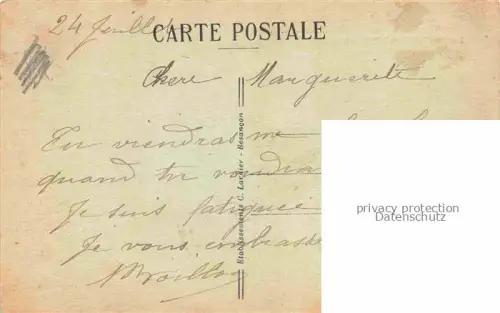 24 Juillet
CARTE POSTALE
Chere Marguerite
Tu viendras me
quand tu voudras
Je suis fatiguée
Je vous embrasse
Etablissements C. Lardier - Besançon
privacy protection
Datenschutz